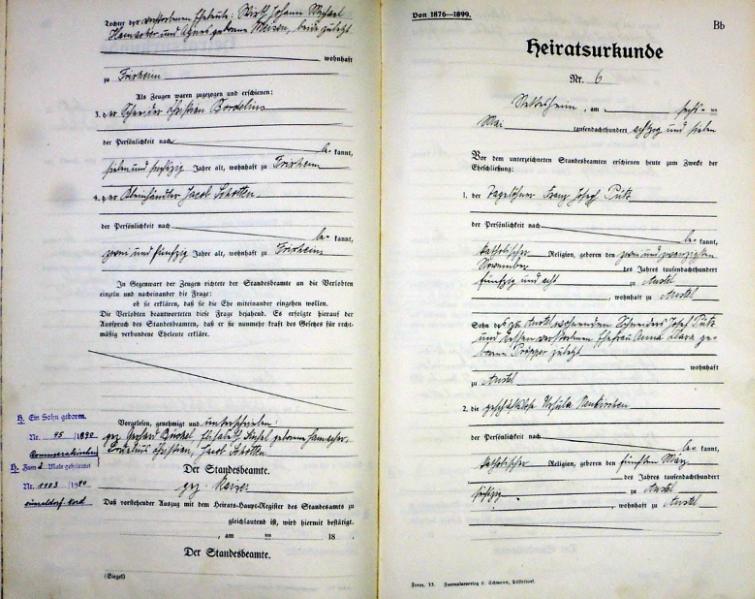 Tochter der verstorbenen Eheleute: Wirth Johann Michael
und Agnes geborene beide zuletzt
wohnhaft
zu Frixheim
Als Zeugen waren zugezogen und erschienen:
3. der Schneider Christian Bordelius
der Persönlichkeit nach
be kannt,
sieben und sechszig Jahre alt, wohnhaft zu Frixheim
4. der Kleinhändler Jacob Schotten
der Persönlichkeit nach
be kannt,
zwei und fünfzig Jahre alt, wohnhaft zu Frixheim
In Gegenwart der Zeugen richtete der Standesbeamte an die Verlobten
einzeln und nacheinander die Frage:
ob sie erklären, daß sie die Ehe miteinander eingehen wollen.
Die Verlobten beantworteten diese Frage bejahend. Es erfolgte hierauf der
Ausspruch des Standesbeamten, daß er sie nunmehr kraft des Gesetzes für recht-
mäßig verbundene Eheleute erkläre.
H. Ein Sohn geboren.
Nr. 45 /1890
Rommerskirchen
H. Zum 2. Male geheiratet
Nr. 1103 /19
Düsseldorf-Nord
Vorgelesen, genehmigt und unterschrieben:
gez. geborene
Christian, Jacob Schotten
Der Standesbeamte.
gez. Kaiser
Daß vorstehender Auszug mit dem Heirats-Haupt-Register des Standesamts zu
gleichlautend ist, wird hiermit bestätigt.
, am ten 18
Der Standesbeamte.
(Siegel)
Von 1876—1899.
Bb
Heiratsurkunde
Nr. 6
Nettesheim, am sechs ten
Mai tausendachthundert achtzig und sieben
Vor dem unterzeichneten Standesbeamten erschienen heute zum Zwecke der
Eheschließung:
1. der Tagelöhner Franz Josef Pütz
der Persönlichkeit nach
be kannt,
katholischer Religion, geboren den zwei und zwanzigsten
November des Jahres tausendachthundert
fünfzig und acht zu Anstel
, wohnhaft zu Anstel
Sohn des zu Anstel wohnenden Schneiders Josef Pütz
und dessen verstorbenen Ehefrau Anna Clara ge-
borene Pröpper zuletzt
wohnhaft
zu Anstel
2. die geschäftslose Ursula Neukirchen
der Persönlichkeit nach
be kannt,
katholischer Religion, geboren den fünften März
des Jahres tausendachthundert
sechszig zu Anstel
, wohnhaft zu Anstel
Form. 13. Formularverlag L. Schwann, Düsseldorf.